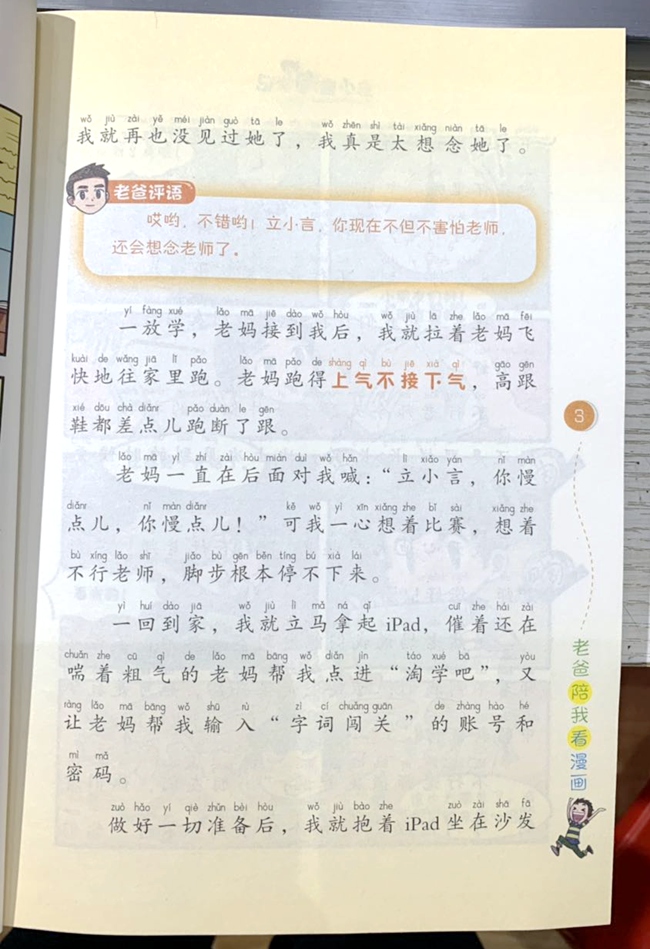 wǒ jiù zài yě méi jiàn guò tā le wǒ zhēn shì tài xiǎng niàn tā le
我就再也没见过她了，我真是太想念她了。
老爸评语
哎哟，不错哟！立小言，你现在不但不害怕老师，
还会想念老师了。
yí fàng xué lǎo mā jiē dào wǒ hòu wǒ jiù lā zhe lǎo mā fēi
一放学，老妈接到我后，我就拉着老妈飞
kuài de wǎng jiā lǐ pǎo lǎo mā pǎo de shàng qì bù jiē xià qì gāo gēn
快地往家里跑。老妈跑得上气不接下气，高跟
xié dōu chà diǎnr pǎo duàn le gēn
鞋都差点儿跑断了跟。
lǎo mā yì zhí zài hòu miàn duì wǒ hǎn lì xiǎo yán nǐ màn
老妈一直在后面对我喊：“立小言，你慢
diǎnr nǐ màn diǎnr kě wǒ yì xīn xiǎng zhe bǐ sài xiǎng zhe
点儿，你慢点儿！”可我一心想着比赛，想着
bù xíng lǎo shī jiǎo bù gēn běn tíng bú xià lái
不行老师，脚步根本停不下来。
yì huí dào jiā wǒ jiù lì mǎ ná qǐ cuī zhe hái zài
一回到家，我就立马拿起iPad，催着还在
chuǎn zhe cū qì de lǎo mā bāng wǒ diǎn jìn táo xué bā yòu
喘着粗气的老妈帮我点进“淘学吧”，又
ràng lǎo mā bāng wǒ shū rù zì cí chuǎng guān de zhàng hào hé
让老妈帮我输入“字词闯关”的账号和
mì mǎ
密码。
zuò hǎo yí qiè zhǔn bèi hòu wǒ jiù bào zhe zuò zài shā fā
做好一切准备后，我就抱着iPad坐在沙发
3
老爸陪我看漫画